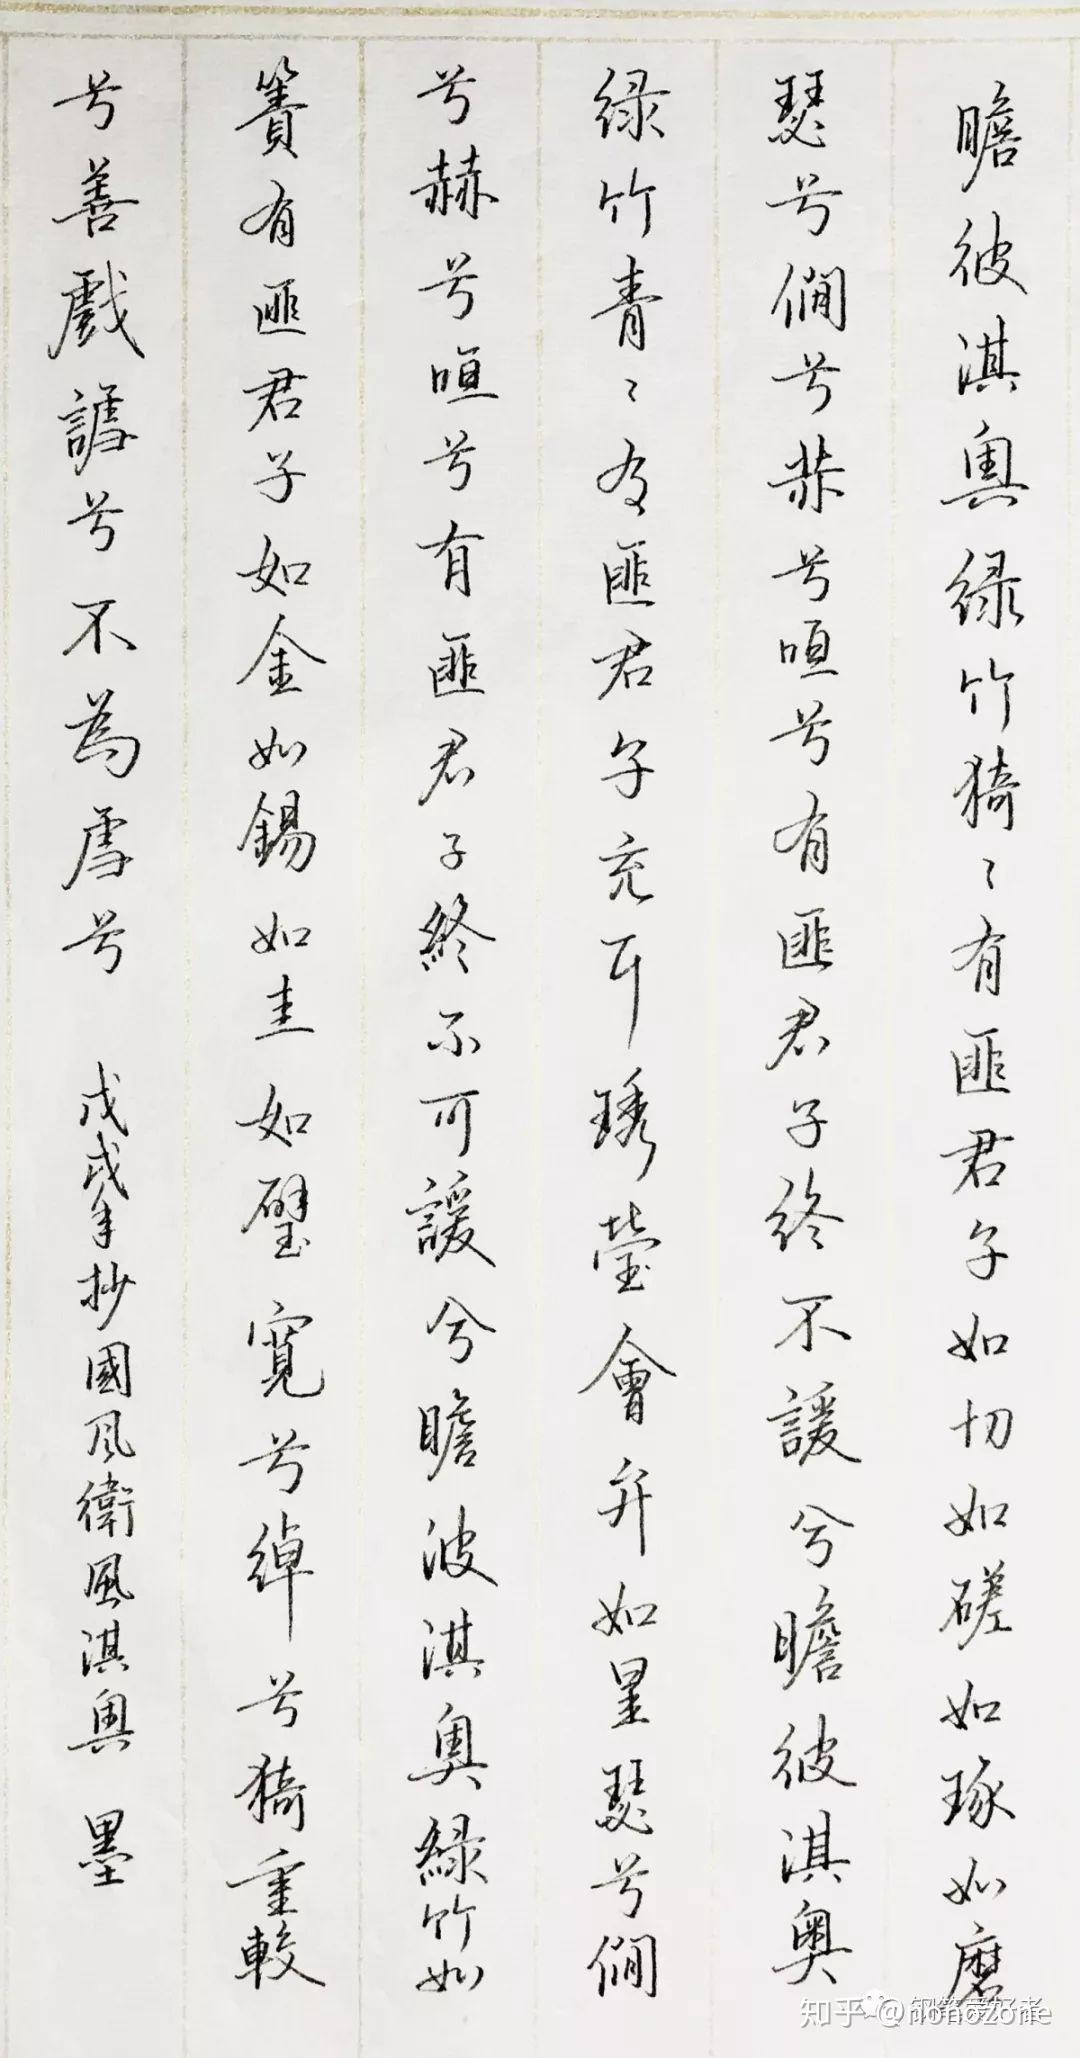 瞻彼淇奥绿竹猗〻有匪君子如切如磋如琢如磨
瑟兮僩兮赫兮咺兮有匪君子终不諼兮瞻彼淇奥
绿竹青〻有匪君子充耳琇瑩會弁如星瑟兮僩
兮赫兮咺兮有匪君子終不可諼兮瞻波淇奥綠竹如
簀有匪君子如金如錫如圭如璧寬兮绰兮猗重較
兮善戲謔兮不為虐兮 戊戌年抄國风衛風淇奥 墨
知乎 @nonozone
钢笔爱好者